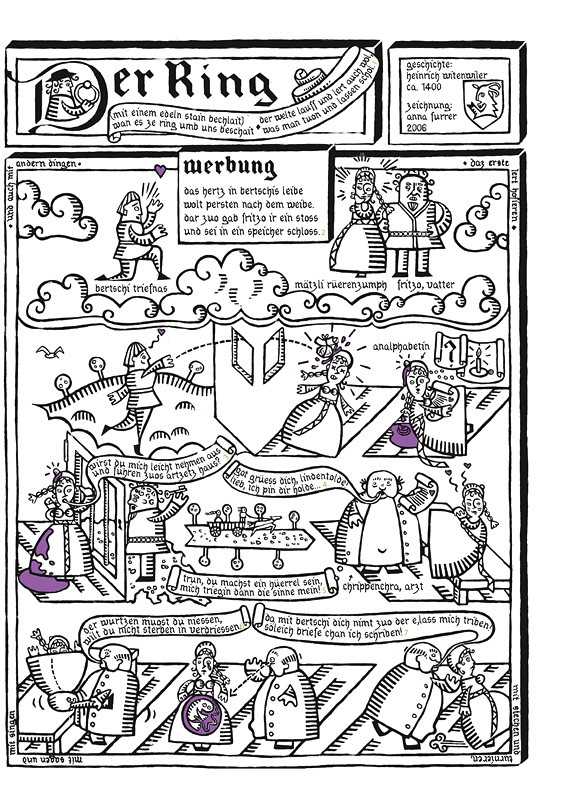 Der Ring
(mit einem edeln stain bechlait)
wan es ze ring umb uns beschait
der welte lauff und lert auch wol
was man tuon und lassen schol.
geschichte:
heinrich witenwiler
ca. 1400
zeichnung:
anna furrer
2006
• und auch mit
andern dingen •
• daz erste
lert hofieren •
werbung
das hertz in bertschis leibe
wolt persten nach dem weibe.
dar zuo gab fritzo ir ein stoss
und sei in ein speicher schloss. 2
bertschi triefnas
mätzli rüerenzumph
fritzo, vatter
analphabetin
wirst du mich leicht nehmen aus
und führen zuos artzetz haus?
got gruess dich, lindentolde!
lieb, ich pin dir holde...
trun, du machst ein hüerrel sein,
mich triegin dann die sinne mein!
chrippenchra, arzt
der wurtzen muost du niessen,
wilt du nicht sterben in verdriessen.
da mit bertschi dich nimt zuo der e, lass mich triben!
soleich briefe chan ich schriben!
mit singen
mit sagen und
mit stechen und
turnieren